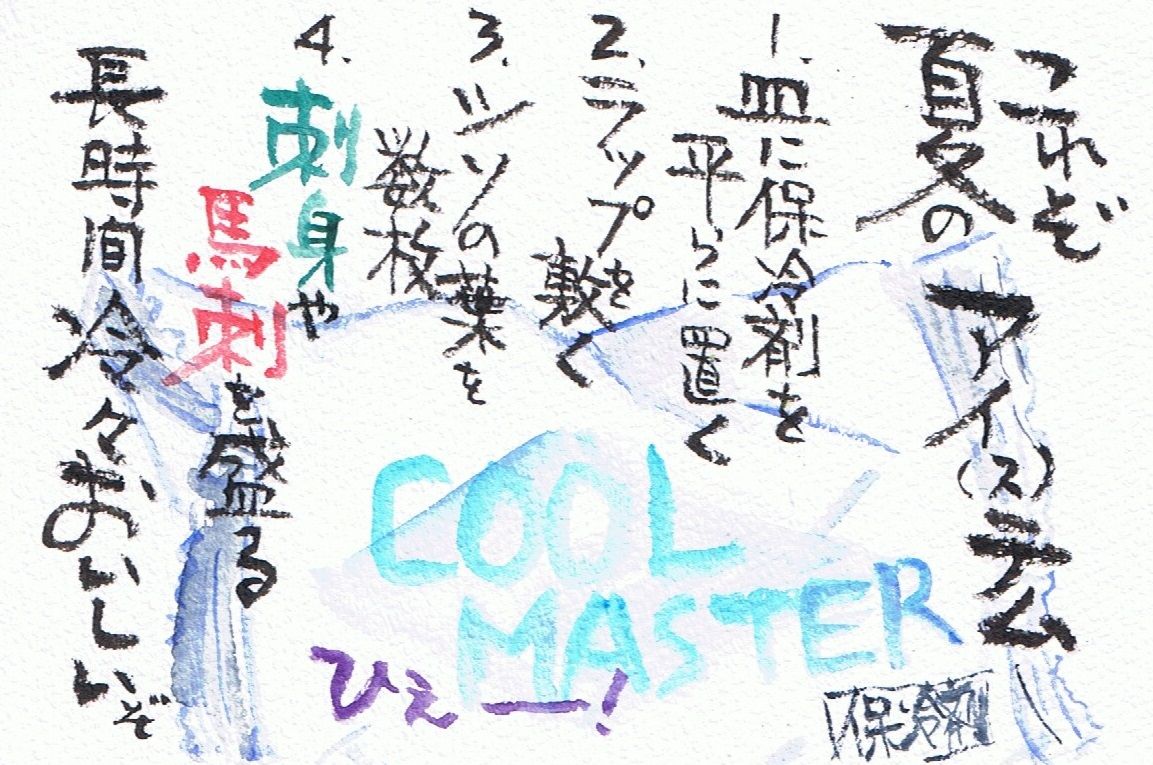 これぞ
夏の
アイ(ス)テム
1.皿に保冷剤を
平らに置く
2.ラップを
敷く
3.シソの葉を
数枚
4.刺身や
馬刺を盛る
長時間冷々おいしいぞ
COOL
MASTER
ひえー!
保冷剤